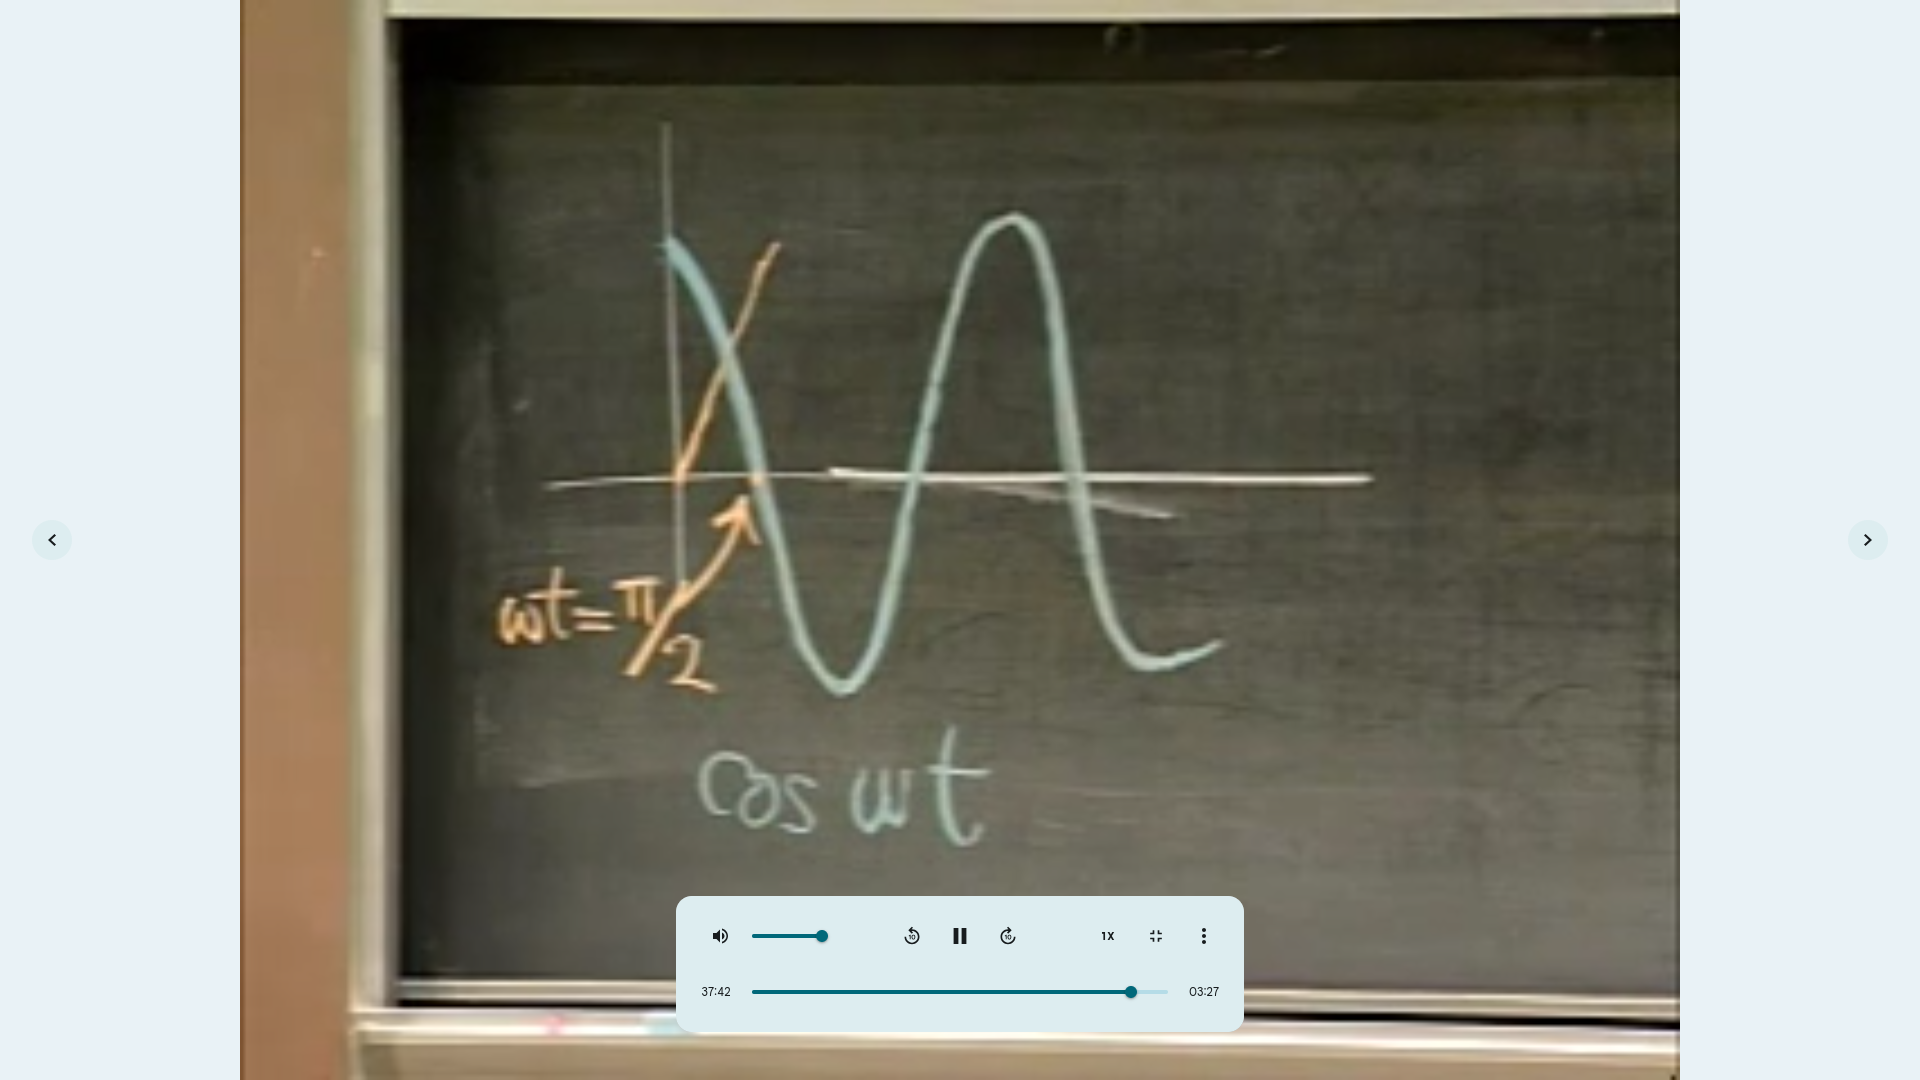 ωt=π/2
cos ωt
1X
37:42
03:27